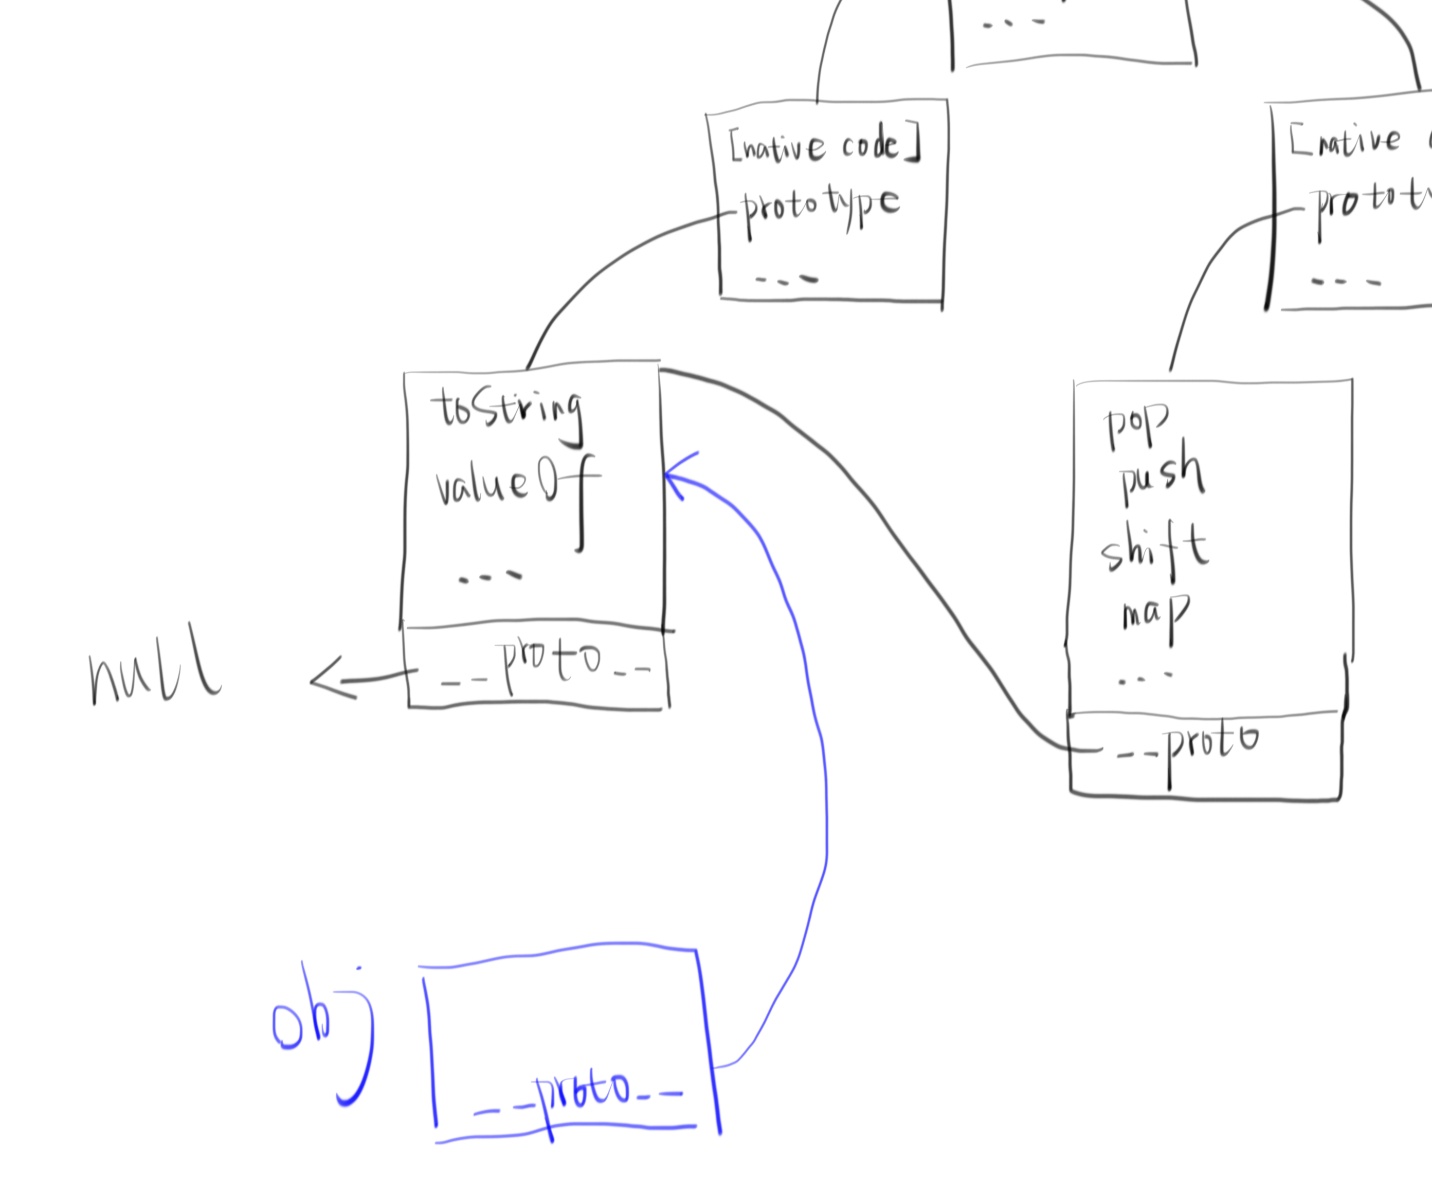 ...
[native code]
prototype
...
[native
protot
...
toString
valueOf
...
__proto__
null
pop
push
shift
map
...
__proto
obj
__proto__